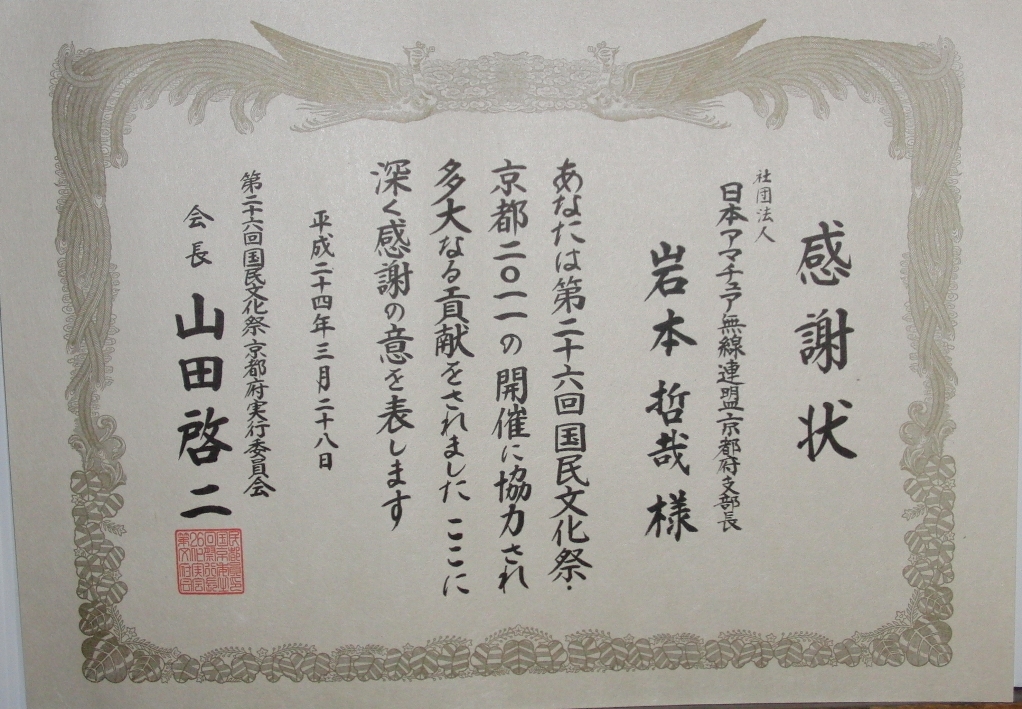 感謝状
社団法人
日本アマチュア無線連盟京都府支部長
岩本哲哉様
あなたは第二十六回国民文化祭・
京都二〇一一の開催に協力され
多大なる貢献をされました ここに
深く感謝の意を表します
平成二十四年三月二十八日
第二十六回国民文化祭京都府実行委員会
会長 山田啓二